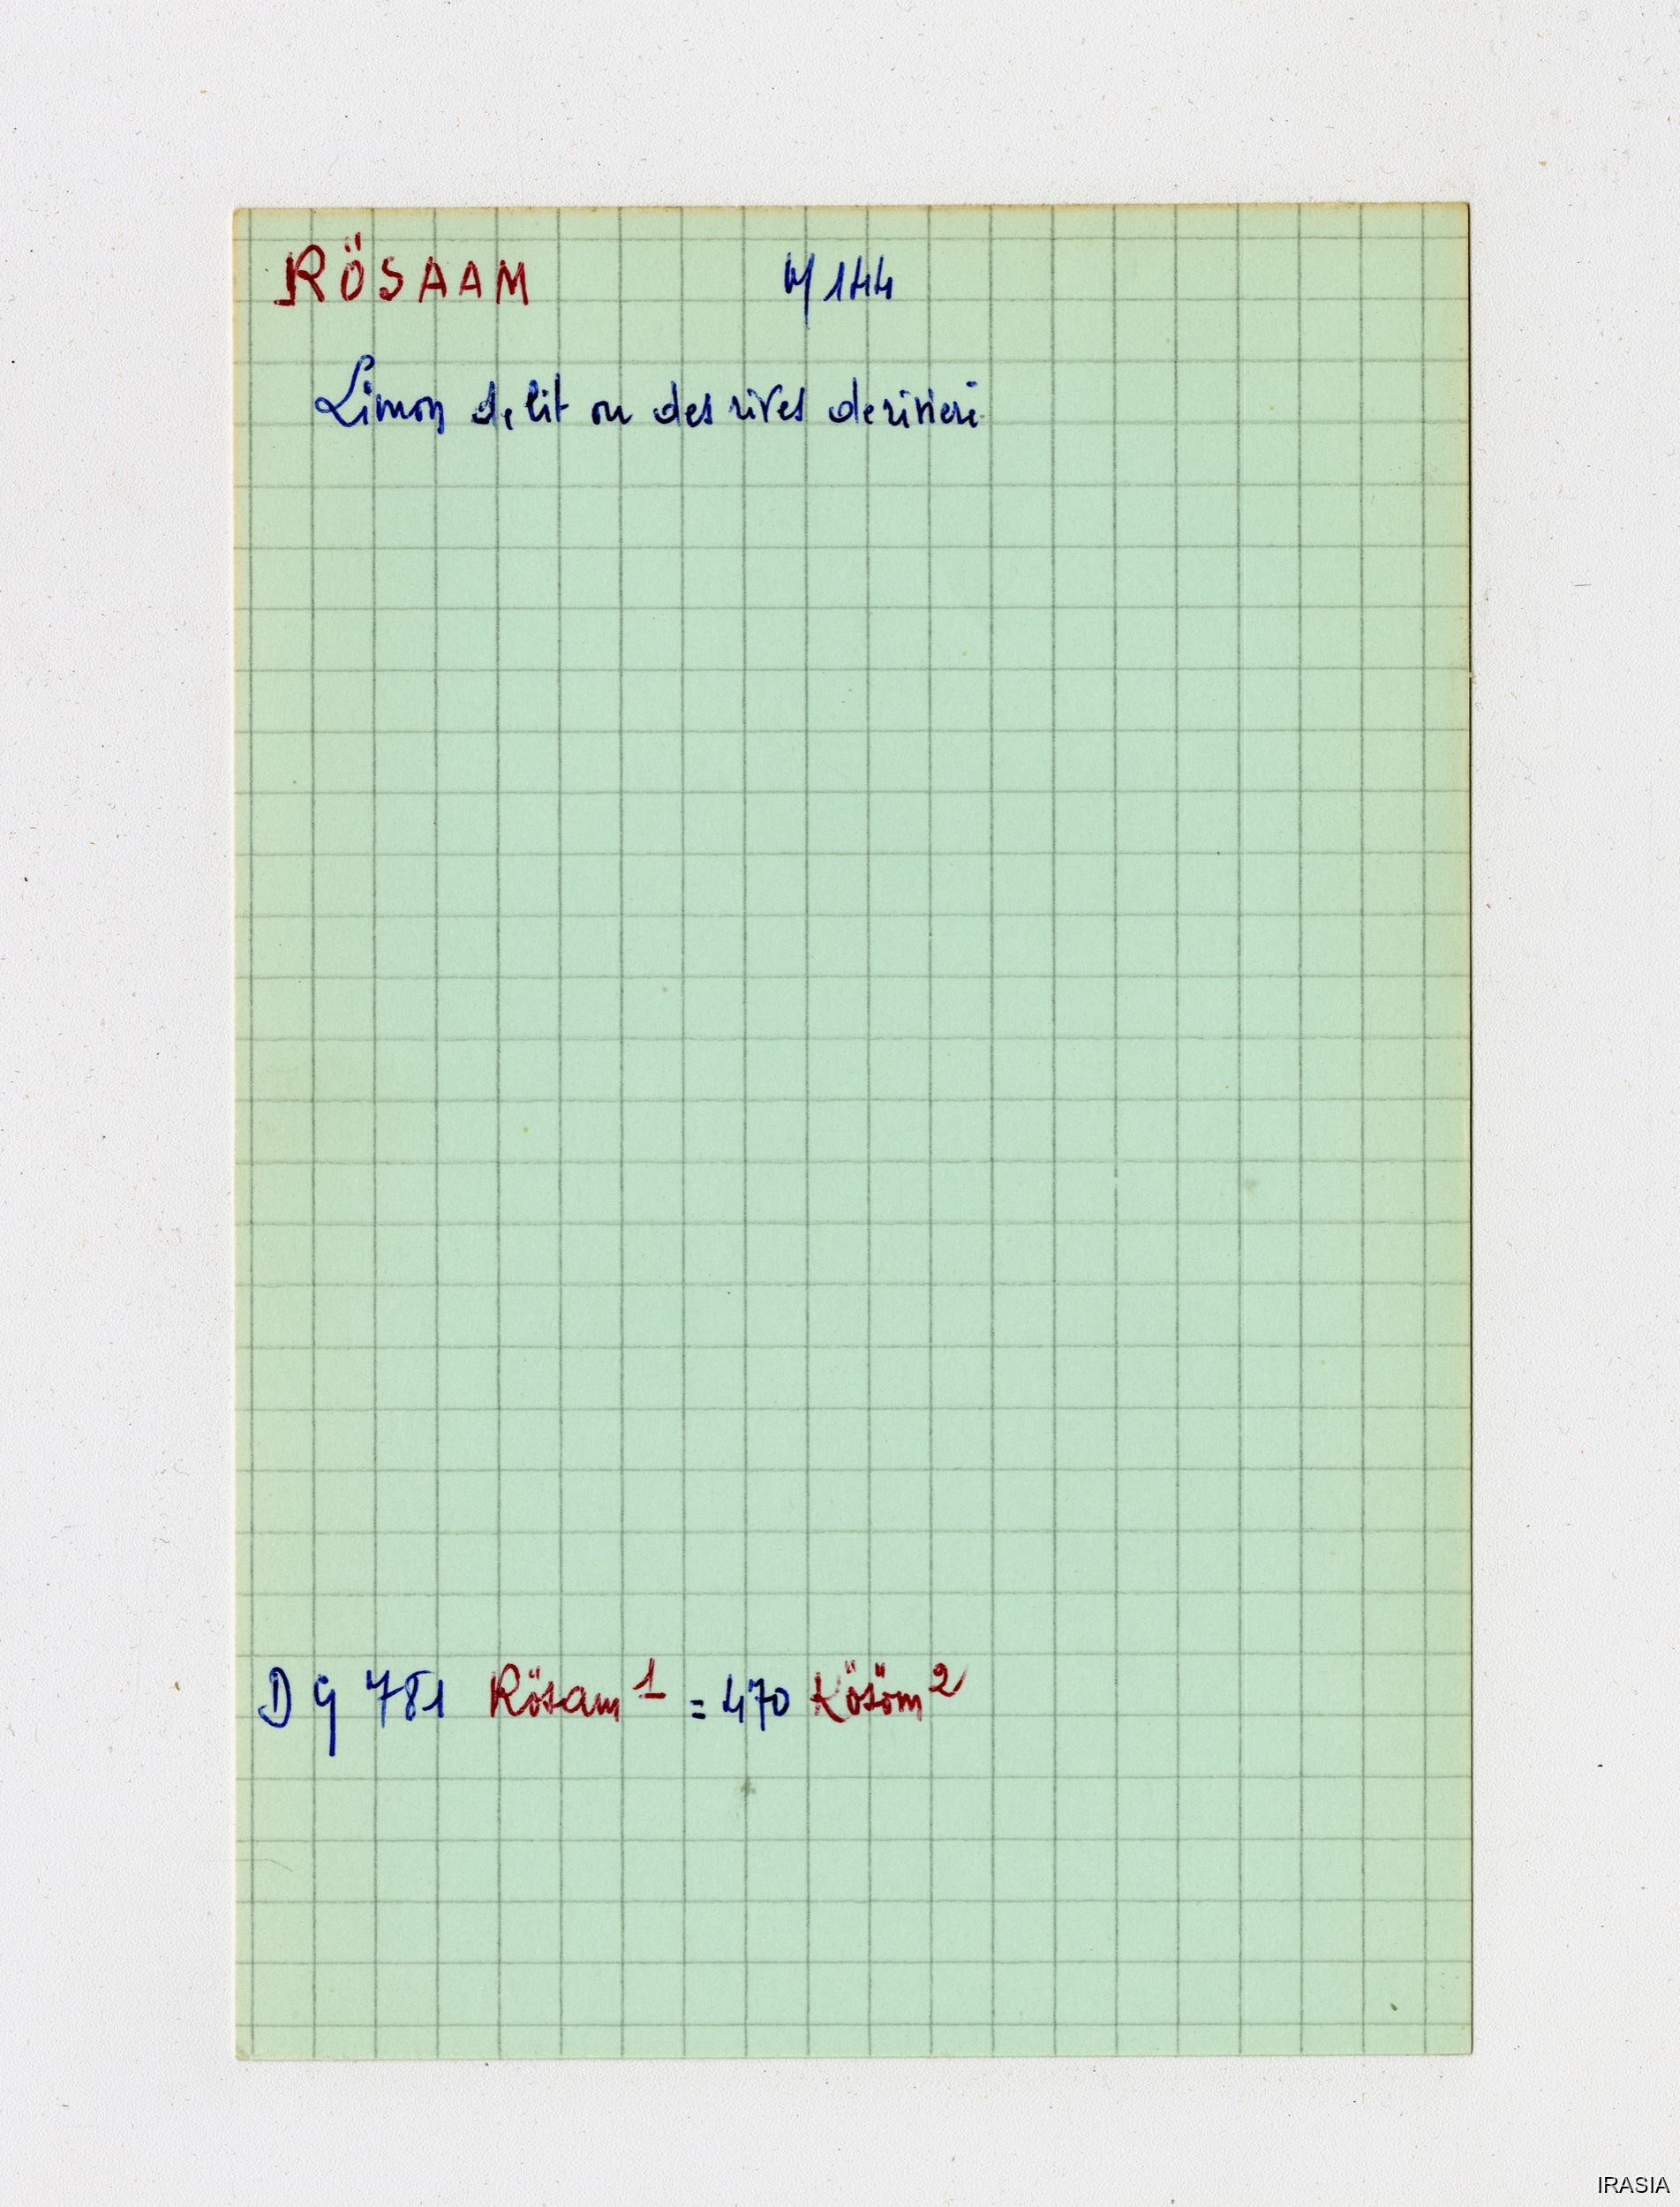 RÖSAAM M 144
Limon de lit ou des rives de rivière
D G 781 Rösam 1 = 470 Kösöm 2
IRASIA